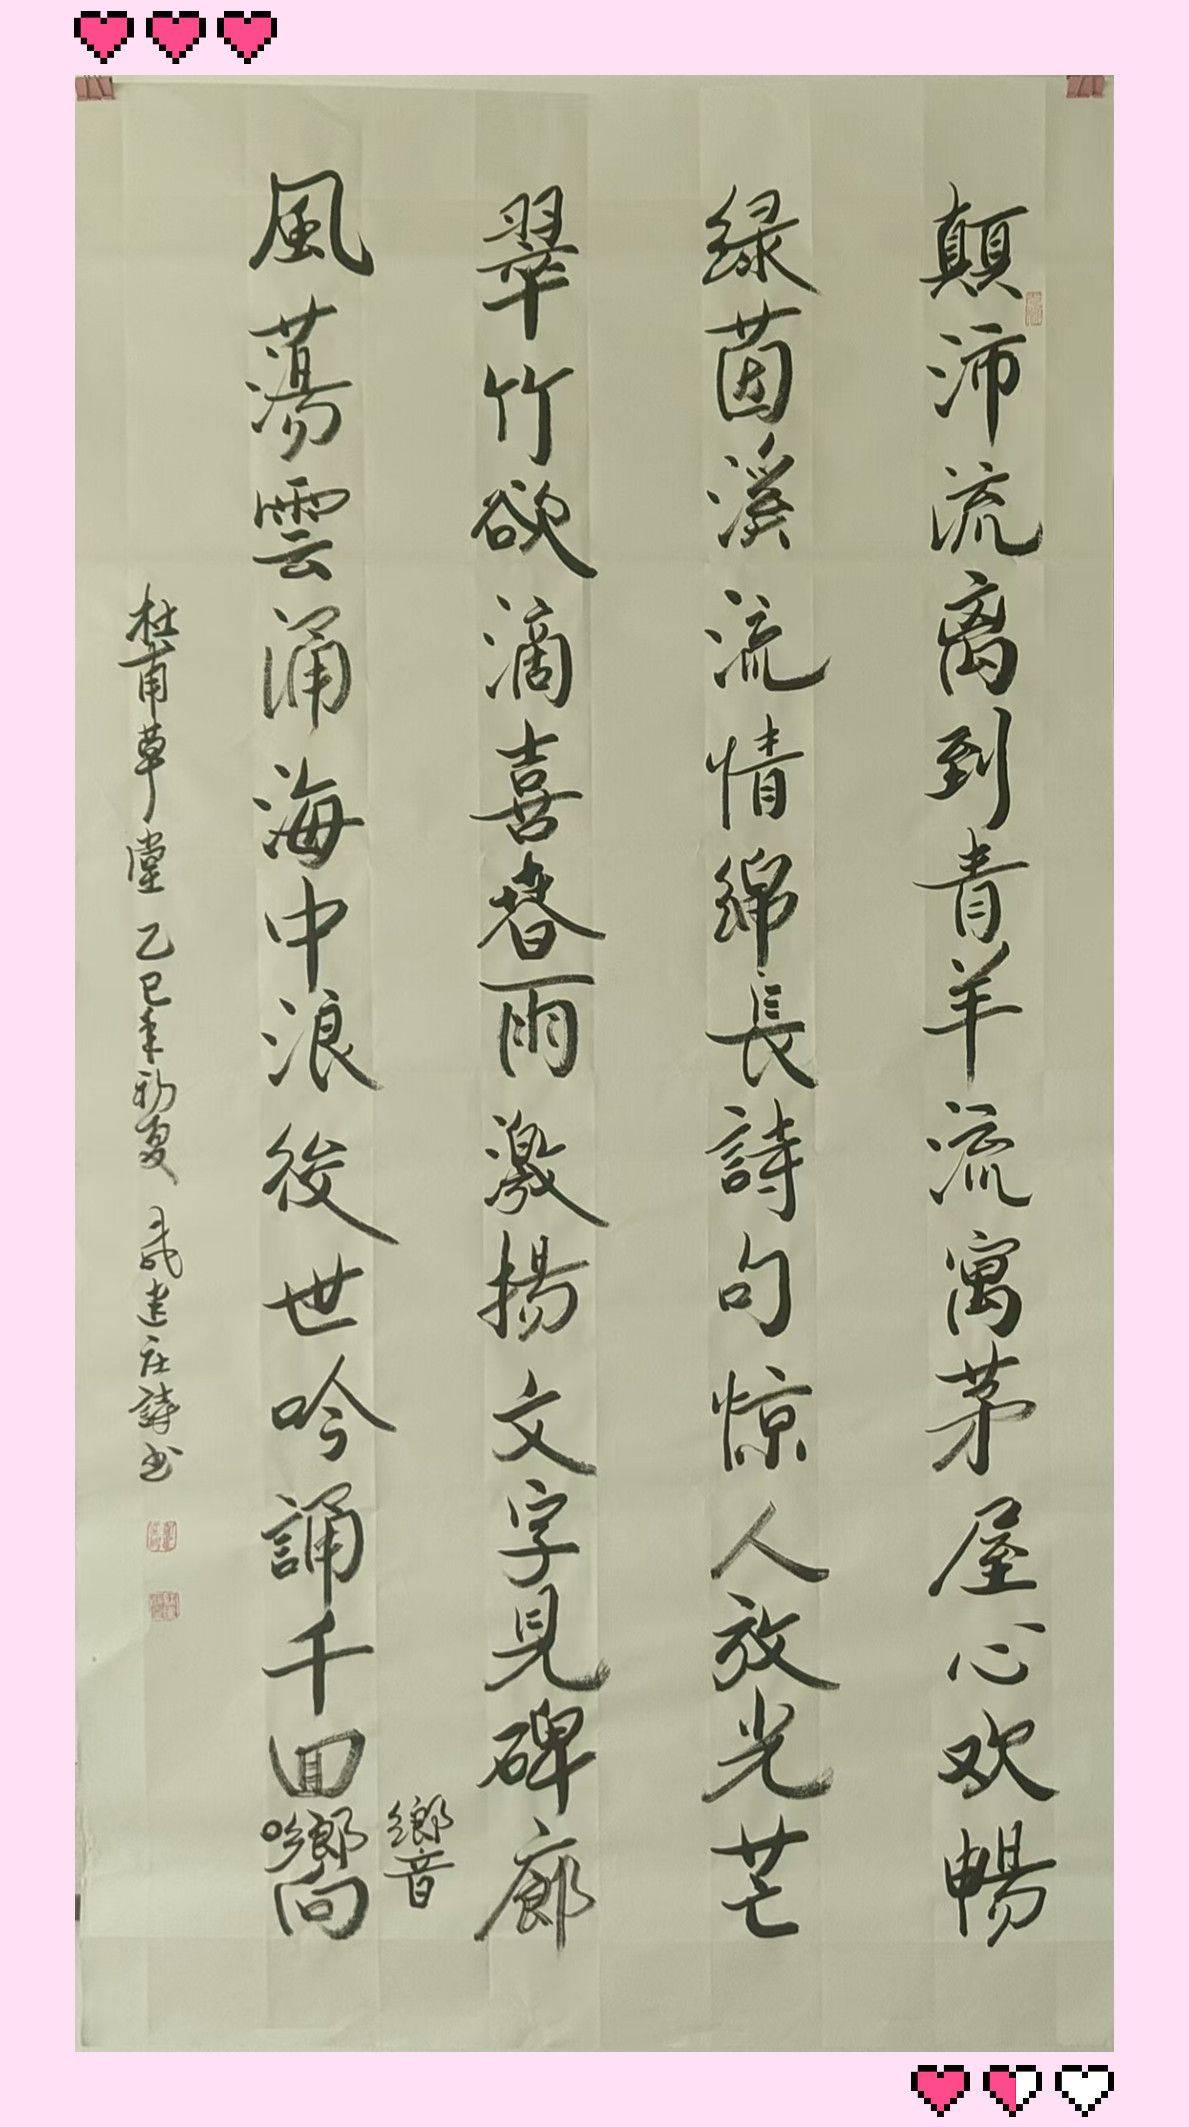 顛沛流离到青羊流寓茅屋心欢暢
绿茵溪流情綿長詩句惊人放光芒
翠竹欲滴喜春雨激揚文字見碑廊
響
風蕩雲涌海中浪後世吟誦千回嚮
杜甫草堂 乙巳年初夏 建庄詩书